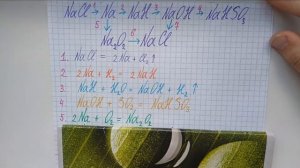 NaCl ¹→ Na ²→ NaH ³→ NaOH ⁴→ NaHSO₃
5↓ 7↓
Na₂O₂ ⁶→ NaCl
1. NaCl = 2Na + Cl₂↑
2. 2Na + H₂ = 2NaH
3. NaH + H₂O = NaOH + H₂↑
4. NaOH + SO₂ = NaHSO₃
5. 2Na + O₂ = Na₂O₂